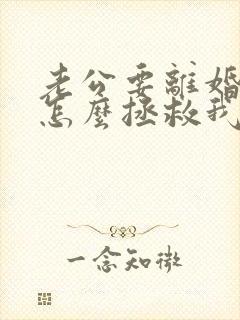 老公要離婚
怎麼拯救我
一念知微